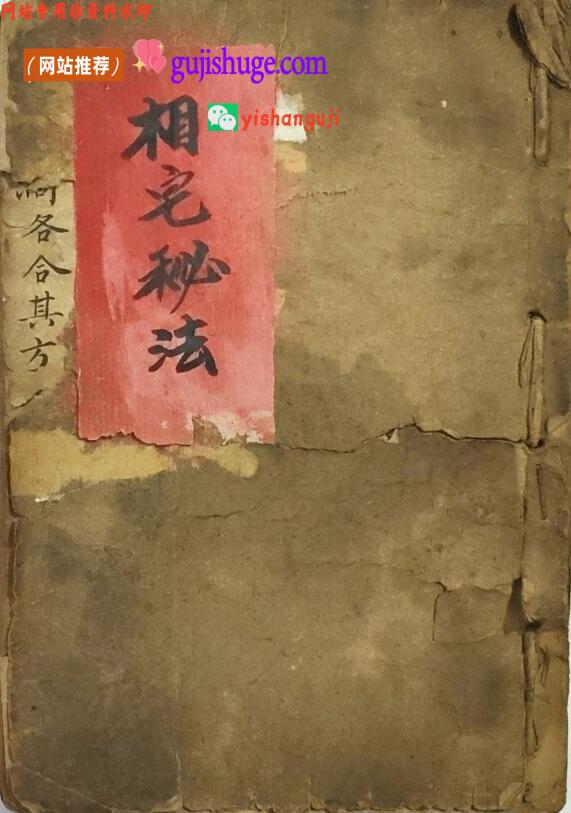 网站专用非资料水印
（网站推荐）
gujishuge.com
yishanguji
相宅秘法
向各合其方